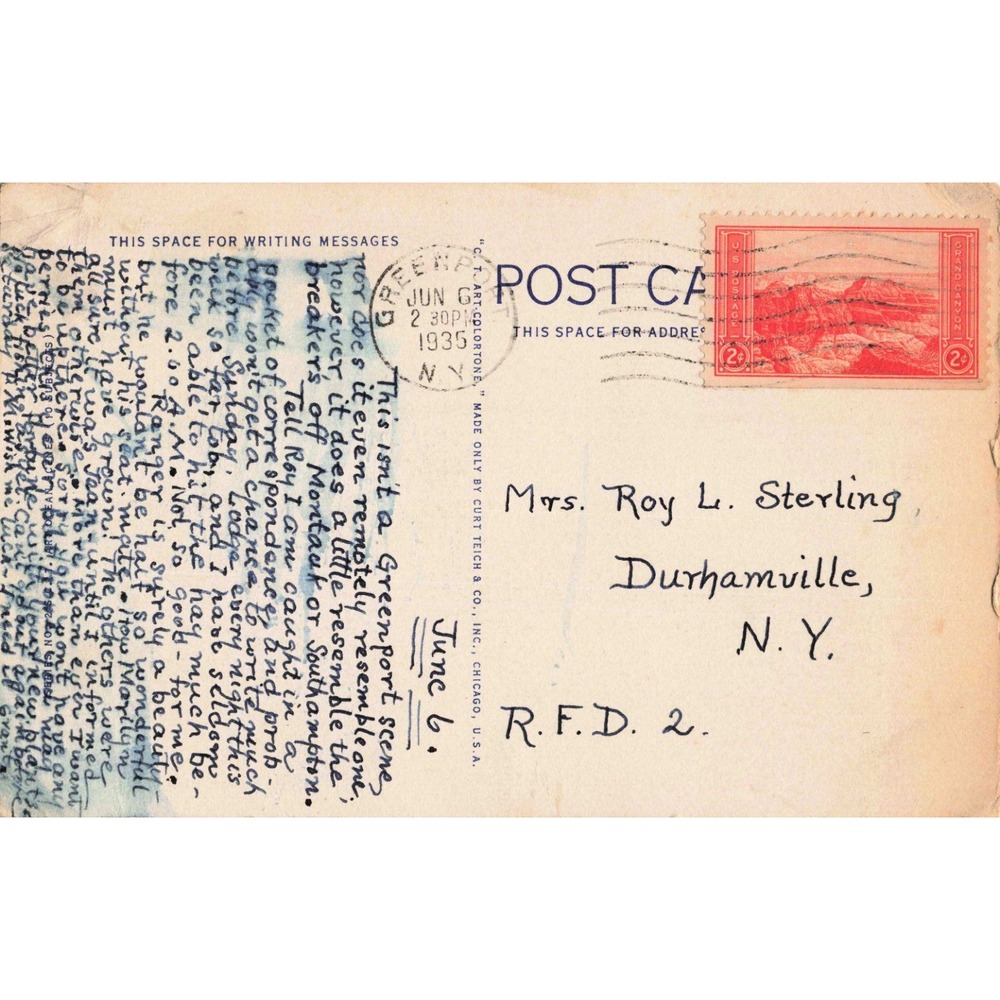 THIS SPACE FOR WRITING MESSAGES
GREENPORT
JUN 6
2 30PM
1935
N.Y.
POST CA
THIS SPACE FOR ADDRE
U.S. POSTAGE
GRAND CANYON
2¢
2¢
"C.T. ART-COLORTONE," MADE ONLY BY CURT TEICH & CO., INC., CHICAGO, U.S.A.
Mrs. Roy L. Sterling,
Durhamville,
N. Y.
R.F.D. 2.
June 6.
This isn't a Greenport scene
nor does it even remotely resemble one;
however, it does a little resemble the
breakers off Montauk or Southampton.
Tell Roy I am caught in a
pocket of correspondence, and prob-
ably won't get a chance to write much
before Sunday. Lodge every night this
week so far, tob, and I have seldom
been able to hit the hay much be-
fore 2.00 A.M. Not so good - for me.
Ranger is surely a beauty
but he wouldn't be half so wonderful
without his seat-mate. How Marilyn
must have grown! The others were
all sure it was Jean until I informed
them otherwise. More than ever I want
to be up there. Sorry you won't have any
berries